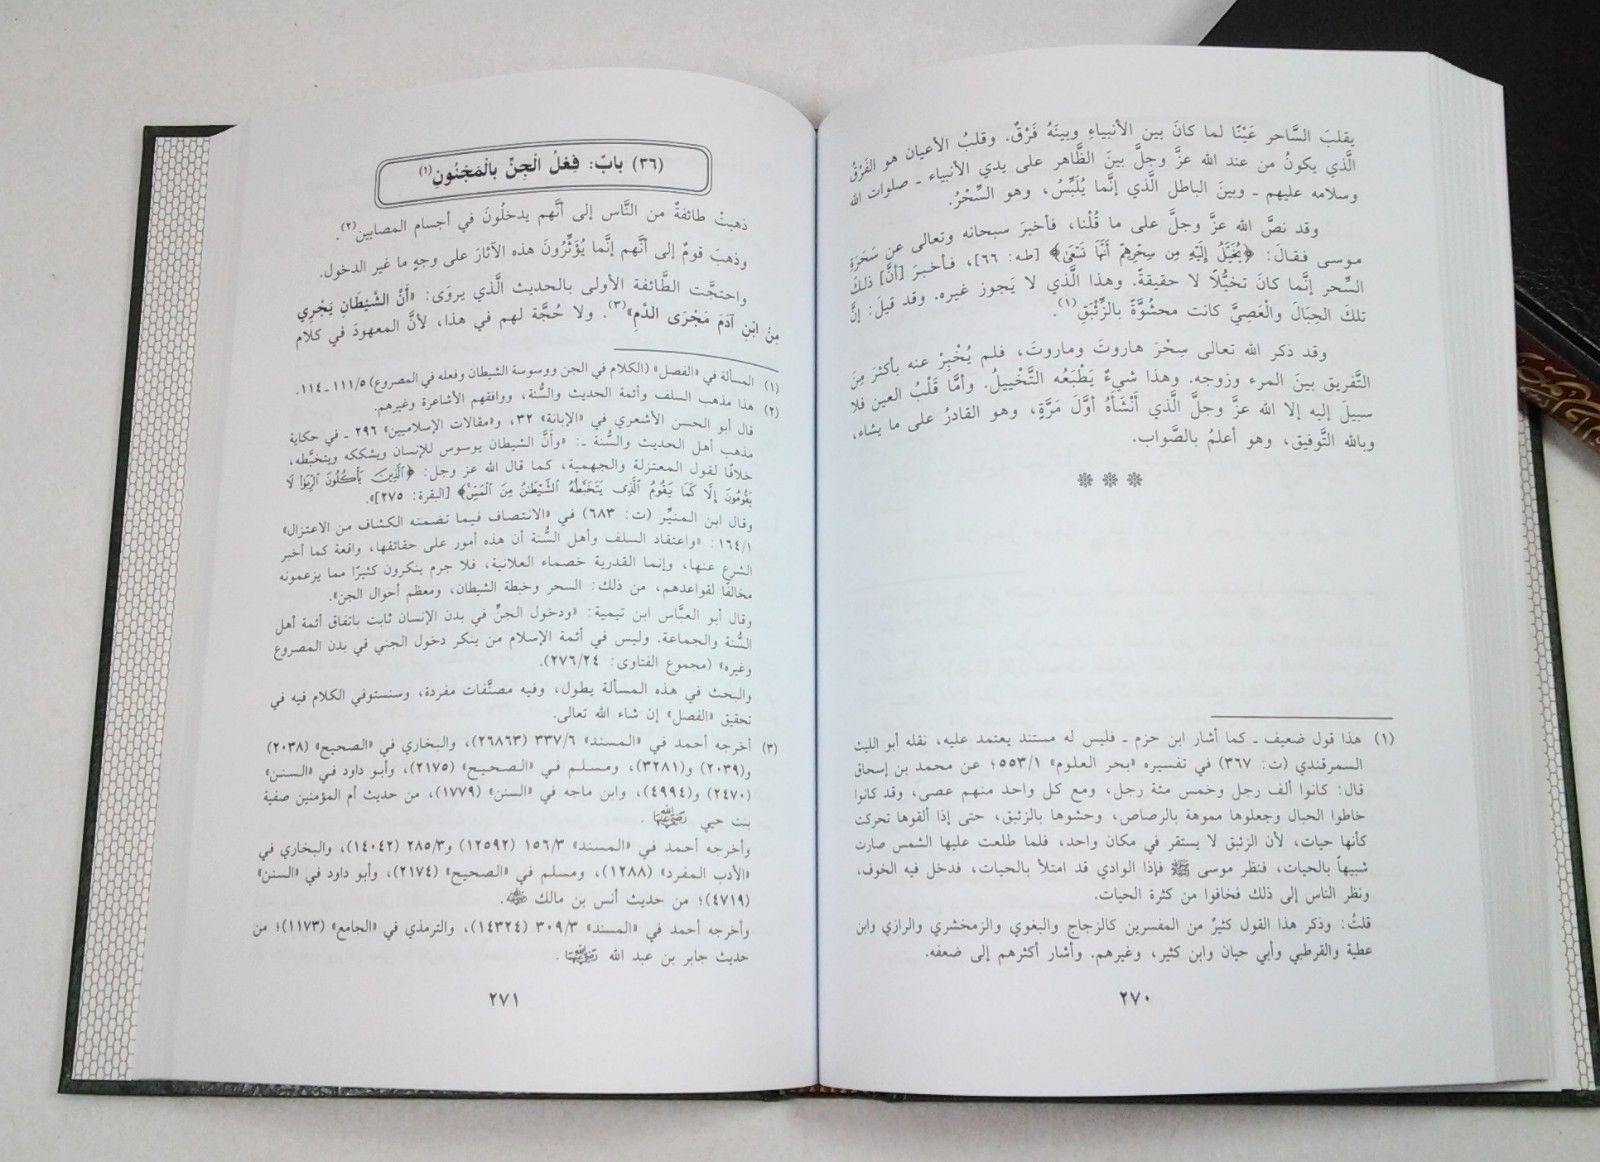 يقلبَ السَّاحر عَيْنًا لما كانَ بين الأنبياءِ وبينَهُ فَرْقٌ. وقلبُ الأعيان هو الفَرْقُ
الَّذي يكونُ من عند الله عزَّ وجلَّ بينَ الظَّاهر على يدي الأنبياء ـ صلوات الله
وسلامه عليهم ـ وبينَ الباطل الَّذي إنَّما يُلَبِّسُ، وهو السِّحْرُ.
وقد نصَّ الله عزَّ وجلَّ على ما قُلْنا، فأخبرَ سبحانه وتعالى عن سَحَرَةِ
موسى فقالَ: ﴿يُخَيَّلُ إِلَيْهِ مِن سِحْرِهِمْ أَنَّهَا تَسْعَىٰ﴾ [طه: ٦٦]، فأخبرَ [أنَّ] ذلكَ
السِّحر إنَّما كانَ تخيُّلًا لا حقيقةً. وهذا الَّذي لا يَجوز غيره. وقد قيلَ: إنَّ
تلكَ الحِبَالَ والْعَصِيَّ كانت محشُوَّةً بالزِّئْبَقِ(١).
وقد ذكر الله تعالى سِحْرَ هاروتَ وماروتَ، فلم يُخْبِرْ عنه بأكثرَ مِنَ
التَّفريق بينَ المرء وزوجه. وهذا شيءٌ يَطْبَعُه التَّخْييلُ. وأمَّا قَلْبُ العين فلا
سبيلَ إليه إلا الله عزَّ وجلَّ الَّذي أَنْشَأَهُ أوَّلَ مَرَّةٍ، وهو القادرُ على ما يشاء،
وبالله التَّوفيق، وهو أعلمُ بالصَّواب.
* * *
(١) هذا قول ضعيف ـ كما أشار ابن حزم ـ فليس له مستند يعتمد عليه، نقله أبو الليث
السمرقندي (ت: ٣٦٧) في تفسيره «بحر العلوم» ٥٥٣/١؛ عن محمد بن إسحاق
قال: كانوا ألف رجل وخمس مئة رجل، ومع كل واحد منهم عصى، وقد كانوا
خاطوا الحبال وجعلوها مموهة بالرصاص، وحشوها بالزئبق، حتى إذا ألقوها تحركت
كأنها حيات، لأن الزئبق لا يستقر في مكان واحد، فلما طلعت عليها الشمس صارت
شبيهاً بالحيات، فنظر موسى ﷺ فإذا الوادي قد امتلأ بالحيات، فدخل فيه الخوف،
ونظر الناس إلى ذلك فخافوا من كثرة الحيات.
قلتُ: وذكر هذا القول كثيرٌ من المفسرين كالزجاج والبغوي والزمخشري والرازي وابن
عطية والقرطبي وأبي حيان وابن كثير، وغيرهم. وأشار أكثرهم إلى ضعفه.
٢٧٠
(٣٦) بابٌ: فِعْلُ الْجِنِّ بالْمَجْنُونِ(١)
ذهبتْ طائفةٌ من النَّاس إلى أنَّهم يدخلُونَ في أجسام المصابين(٢).
وذهبَ قومٌ إلى أنَّهم إنَّما يُؤَثِّرُونَ هذه الآثارَ على وجهٍ ما غير الدخول.
واحتجَّت الطَّائفة الأولى بالحديث الَّذي يروَى: «أَنَّ الشَّيْطَانِ يَجْرِي
مِنْ ابْنِ آدَمَ مَجْرَى الدَّمِ»(٣). ولا حُجَّة لهم في هذا، لأنَّ المعهودَ في كلام
(١) المسألة في «الفصل» (الكلام في الجن ووسوسة الشيطان وفعله في المصروع) ١١١/٥ ـ ١١٤.
(٢) هذا مذهب السلف وأئمة الحديث والسُّنة، ووافقهم الأشاعرة وغيرهم.
قال أبو الحسن الأشعري في «الإبانة» ٣٢، و«مقالات الإسلاميين» ٢٩٦ ـ في حكاية
مذهب أهل الحديث والسُّنة ـ: «وأنَّ الشيطان يوسوس للإنسان ويشككه ويتخبَّطه،
خلافًا لقول المعتزلة والجهمية، كما قال الله عز وجل: ﴿الَّذِينَ يَأْكُلُونَ الرِّبَوٰا لَا
يَقُومُونَ إِلَّا كَمَا يَقُومُ الَّذِى يَتَخَبَّطُهُ الشَّيْطَٰنُ مِنَ الْمَسِّ﴾ [البقرة: ٢٧٥]».
وقال ابن المنيِّر (ت: ٦٨٣) في «الانتصاف فيما تضمنه الكشاف من الاعتزال»
١٦٤/١: «واعتقاد السلف وأهل السُّنة أن هذه أمور على حقائقها، واقعة كما أخبر
الشرع عنها، وإنما القدرية خصماء العلانية، فلا جرم ينكرون كثيرًا مما يزعمونه
مخالفًا لقواعدهم، من ذلك: السحر وخبطة الشيطان، ومعظم أحوال الجن».
وقال أبو العبَّاس ابن تيمية: «ودخول الجنِّ في بدن الإنسان ثابت باتفاق أئمة أهل
السُّنة والجماعة. وليس في أئمة الإسلام من ينكر دخول الجني في بدن المصروع
وغيره» (مجموع الفتاوى: ٢٧٦/٢٤).
والبحث في هذه المسألة يطول، وفيه مصنَّفات مفردة، وسنستوفي الكلام فيه في
تحقيق «الفصل» إن شاء الله تعالى.
(٣) أخرجه أحمد في «المسند» ٣٣٧/٦ (٢٦٨٦٣)، والبخاري في «الصحيح» (٢٠٣٨)
و(٢٠٣٩) و(٣٢٨١)، ومسلم في «الصحيح» (٢١٧٥)، وأبو داود في «السنن»
(٢٤٧٠) و(٤٩٩٤)، وابن ماجه في «السنن» (١٧٧٩)، من حديث أم المؤمنين صفية
بنت حيي رضي الله عنها.
وأخرجه أحمد في «المسند» ١٥٦/٣ (١٢٥٩٢) و٢٨٥/٣ (١٤٠٤٢)، والبخاري في
«الأدب المفرد» (١٢٨٨)، ومسلم في «الصحيح» (٢١٧٤)، وأبو داود في «السنن»
(٤٧١٩)؛ من حديث أنس بن مالك رضي الله عنه.
وأخرجه أحمد في «المسند» ٣٠٩/٣ (١٤٣٢٤)، والترمذي في «الجامع» (١١٧٣)؛ من
حديث جابر بن عبد الله رضي الله عنهما.
٢٧١